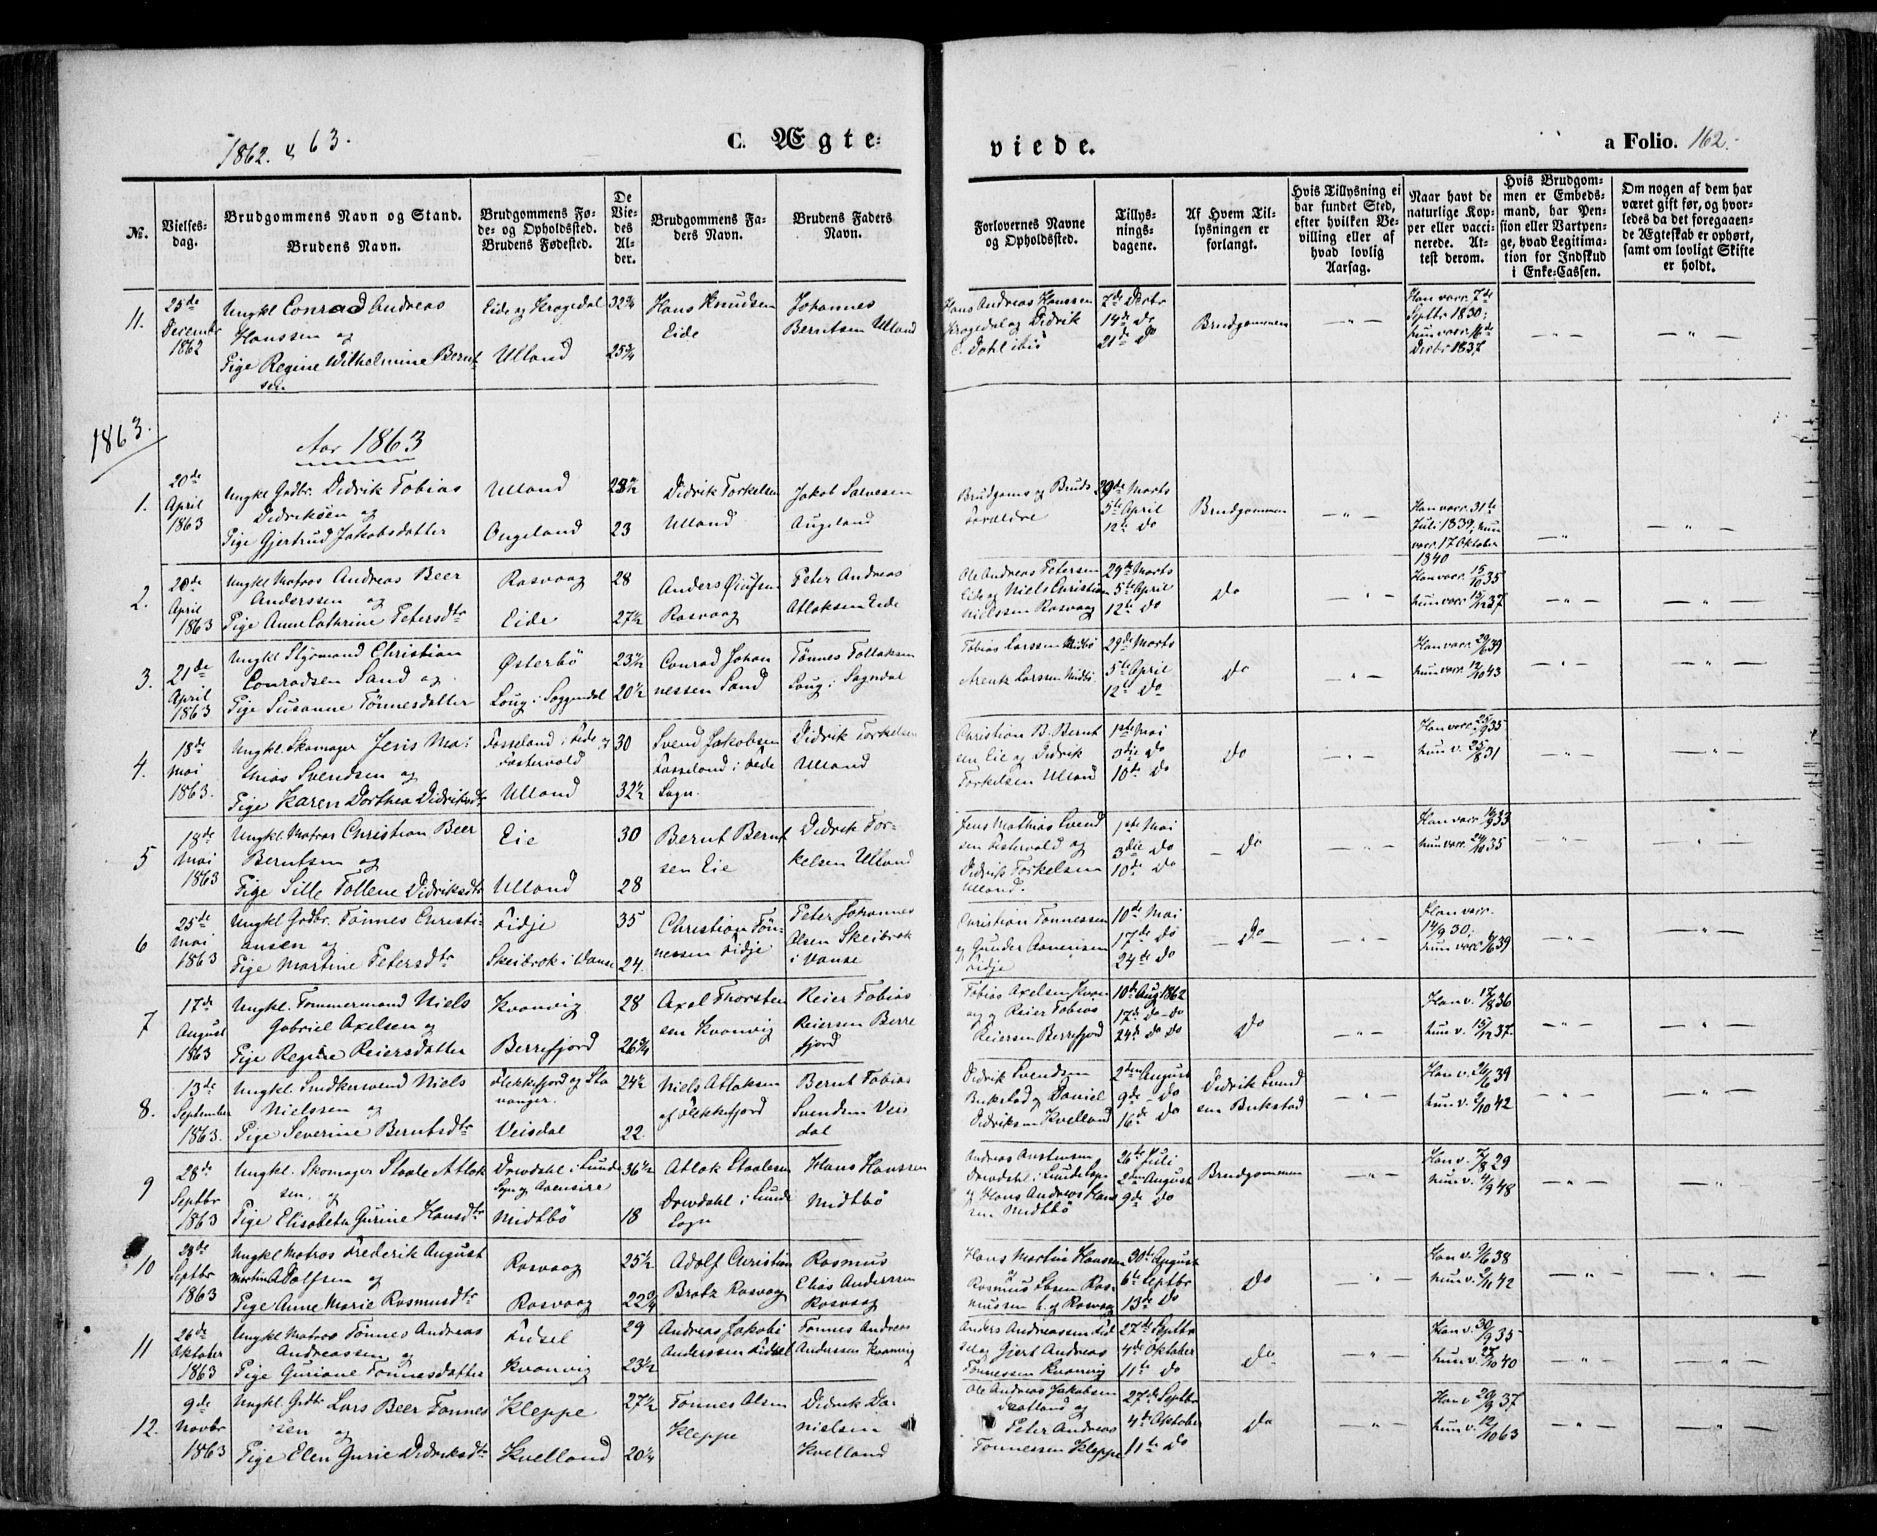 1862 & 63.
C. Ægte-
viede.
a Folio. 162.
No.
Vielses-
dag.
Brudgommens Navn og Stand.
Brudens Navn.
Brudgommens Fø-
de- og Opholdssted.
Brudens Fødested.
De
Vie-
des
Al-
der.
Brudgommens Fa-
ders Navn.
Brudens Faders
Navn.
Forlovernes Navne
og Opholdssted.
Tillys-
nings-
dagene.
Af Hvem Til-
lysningen er
forlangt.
Hvis Tillysning ei
har fundet Sted,
efter hvilken Be-
villing eller af
hvad lovlig
Aarsag.
Naar havt de
naturlige Kop-
per eller vacci-
nerede. At-
test derom.
Hvis Brudgom-
men er Embeds-
mand, har Pen-
sion eller Vartpen-
ge, hvad Legitima-
tion for Indskud
i Enke-Cassen.
Om nogen af dem har
været gift før, og hvor-
ledes da det foregaaen-
de Ægteskab er ophørt,
samt om lovligt Skifte
er holdt.
11.
25de
Decembr
1862
Ungkl Conrad Andreas
Hanssen og
Pige Regine Wilhelmine Bernt
sen
Eide og Kragedal
Ulland
32 3/4
25 3/4
Hans Knudsen
Eide
Johannes
Berntsen Ulland
Hans Andreas Hanssen
Kragedal og Didrik
7de Decbr
14de Do
21de Do
Brudgommen
Han vacc. 7de
Septbr 1830;
hun vacc. 16de
Decbr 1837
1863.
Aar 1863
1.
20de
April
1863
Ungkl Gadbr. Didrik Tobias
Didriksen og
Pige Gjertrud Jakobsdatter
Ulland
Augeland
23 1/2
23
Didrik Torkelsen
Ulland
Jakob Salvesen
Augeland
Brudgoms og Bruds
Forældre
29de Marts
5te April
12te Do
Brudgommen
Han vacc. 31te
Juli 1839; hun
vacc. 17 Oktober
1840
2.
20de
April
1863
Ungkl Matros Andreas Beer
Anderssen og
Pige Anne Cathrine Petersdtr
Rasvaag
Eide
28
27 1/2
Anders Øiufsen
Rasvaag
Peter Andreas
Atlaksen Eide
Ole Andreas Petersen
Eide og Niels Christian
Nielssen Rasvaag
29de Marts
5te April
12te Do
Do
Han vacc. 15/10 35
hun vacc. 15/12 37
3.
21de
April
1863
Ungkl Styrmand Christian
Conradsen Sand og
Pige Susanne Tønnesdatter
Østerbø
Loug i Soggendal
23 1/2
20 1/2
Conrad Johan
nessen Sand
Tønnes Tollaksen
Loug i Sogndal
Tobias Larssen Midbø
Arent Larssen Midbø
29de Marts
5te April
12te Do
Do
Han vacc. 29/6 39
hun vacc. 12/10 43
4.
18de
Mai
1863.
Ungkl. Skomager Jens Ma-
thias Svendsen og
Pige Karen Dorthea Didriksdtr
Fosseland i Fede og
Fostervold
Ulland
30
32 1/2
Svend Jakobsen
Fosseland i Fede
Sogn.
Didrik Torkelsen
Ulland
Christian B. Bernt
sen Eie og Didrik
Torkelsen Ulland
1ste Mai
3die Do
10de Do
Do
Han vacc. 25/9 35
hun v. 25/8 31
5
18de
Mai
1863
Ungkl. Matros Christian Beer
Berntsen og
Pige Sille Tollene Didriksdtr
Eie
Ulland
30
28
Bernt Bernt
sen Eie
Didrik Tor-
kelsen Ulland
Jens Mathias Svend
sen Fostervold og
Didrik Torkelsen
Ulland.
1ste Mai
3die Do
10de Do
Do
Han vacc. 14/9 33
hun vacc. 24/10 35
6
25de
Mai
1863
Ungkl Gadbr. Tønnes Christi-
ansen og
Pige Martine Petersdtr
Fidje
Skeibrok i Vanse
35
24.
Christian Tøn-
nessen Fidje
Peter Johannes
Olsen Skeibrok
i Vanse
Christian Tønnessen
og Gunder Aanensen
Fidje
10de Mai
17de Do
24de Do
Do
Han vacc.
14/9 30;
hun vacc. 6/6 39
7
17de
August
1863
Ungkl. Tømmermand Niels
Gabriel Axelsen og
Pige Regine Reiersdatter
Kvanvig
Berrefjord
28
26 3/4
Axel Thorsten
sen Kvanvig
Reier Tobias
Reiersen Berre
fjord
Tobias Axelsen Kvan
vig og Reier Tobias
Reiersen Berrefjord
10de Aug 1862
17de Do Do
24de Do Do
Do
Han v. 17/8 36
hun v. 15/12 37
8.
13de
September
1863.
Ungkl. Snedkersvend Niels
Nielssen og
Pige Severine Berntsdtr
Flekkefjord og Sta
vanger.
Veisdal
24 1/2
22
Niels Atlaksen
af Flekkefjord
Bernt Tobias
Svendsen Veis
dal
Didrik Svendsen
Bukstad og Daniel
Didriksen Kvelland
2den August
9de Do
16de Do
Didrik Svend
sen Bukstad
Han v. 24/6 39
hun v. 9/10 42
9
28de
Septbr
1863
Ungkl. Skomager Staale Atlak
sen, og
Pige Elisabeth Gurine Hansdtr
Drivdahl i Lunde
Midtbø
36 1/2
18
Atlak Staalesen
Drivdahl i Lunde
Sogn
Hans Hanssen
Midtbø
Andreas Austensen
Drivdahl i Lunde Sogn
og Hans Andreas Hans
sen Midtbø
26te Juli
2den August
9de Do
Brudgommen
Han v. 7/8 29
hun v. 4/9 48
10
28de
Septbr
1863
Ungkl Matros Frederik August
Martin Adolfsen og
Pige Anne Marie Rasmusdtr
Rasvaag
Rasvaag
25 1/2
22 3/4
Adolf Christian
Bratz Rasvaag
Rasmus
Elias Anderssen
Rasvaag
Hans Martin Hanssen
og
Rasmus Ibsen Ras-
mussen b. af Rasvaag
30te August
6te Septbr
13de Do
Do
Han v. 9/6 38
hun v. 2/11 42
11
26de
Oktober
1863
Ungkl Matros Tønnes Andreas
Andreassen og
Pige Guriane Tønnesdatter
Fidsel
Kvanvig
29
23 1/2
Andreas Jakobi
Anderssen Fidsel
Tønnes Andreas
Anderssen Kvanvig
Anders Andreassen Fid
sel og Gjert Andreas
Tønnessen Kvanvig
27de Septbr
4de Oktober
11te Do
Do
Han v. 30/9 35
hun v. 27/10 40
12.
9de
Novbr
1863
Ungkl. Gdbr Lars Beer Tønnes
sen og
Pige Elen Gurie Didriksdtr
Kleppe
Kvelland
27 1/2
20 1/4
Tønnes Olsen
Kleppe
Didrik Da-
nielsen
Kvelland
Ole Andreas Jakobsen
og
Peter Andreas
Tønnessen Kleppe
27de Septbr
4de Oktober
11te Do
Do
Han v. 29/9 37
hun v. 12/10 63